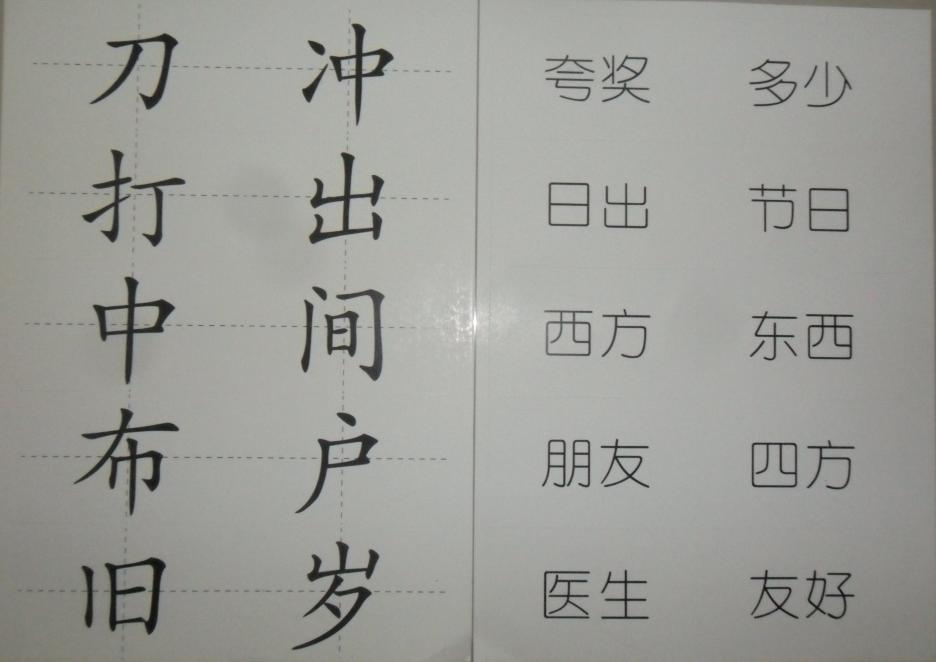 刀 冲
打 出
中 间
布 户
旧 岁
夸奖 多少
日出 节日
西方 东西
朋友 四方
医生 友好